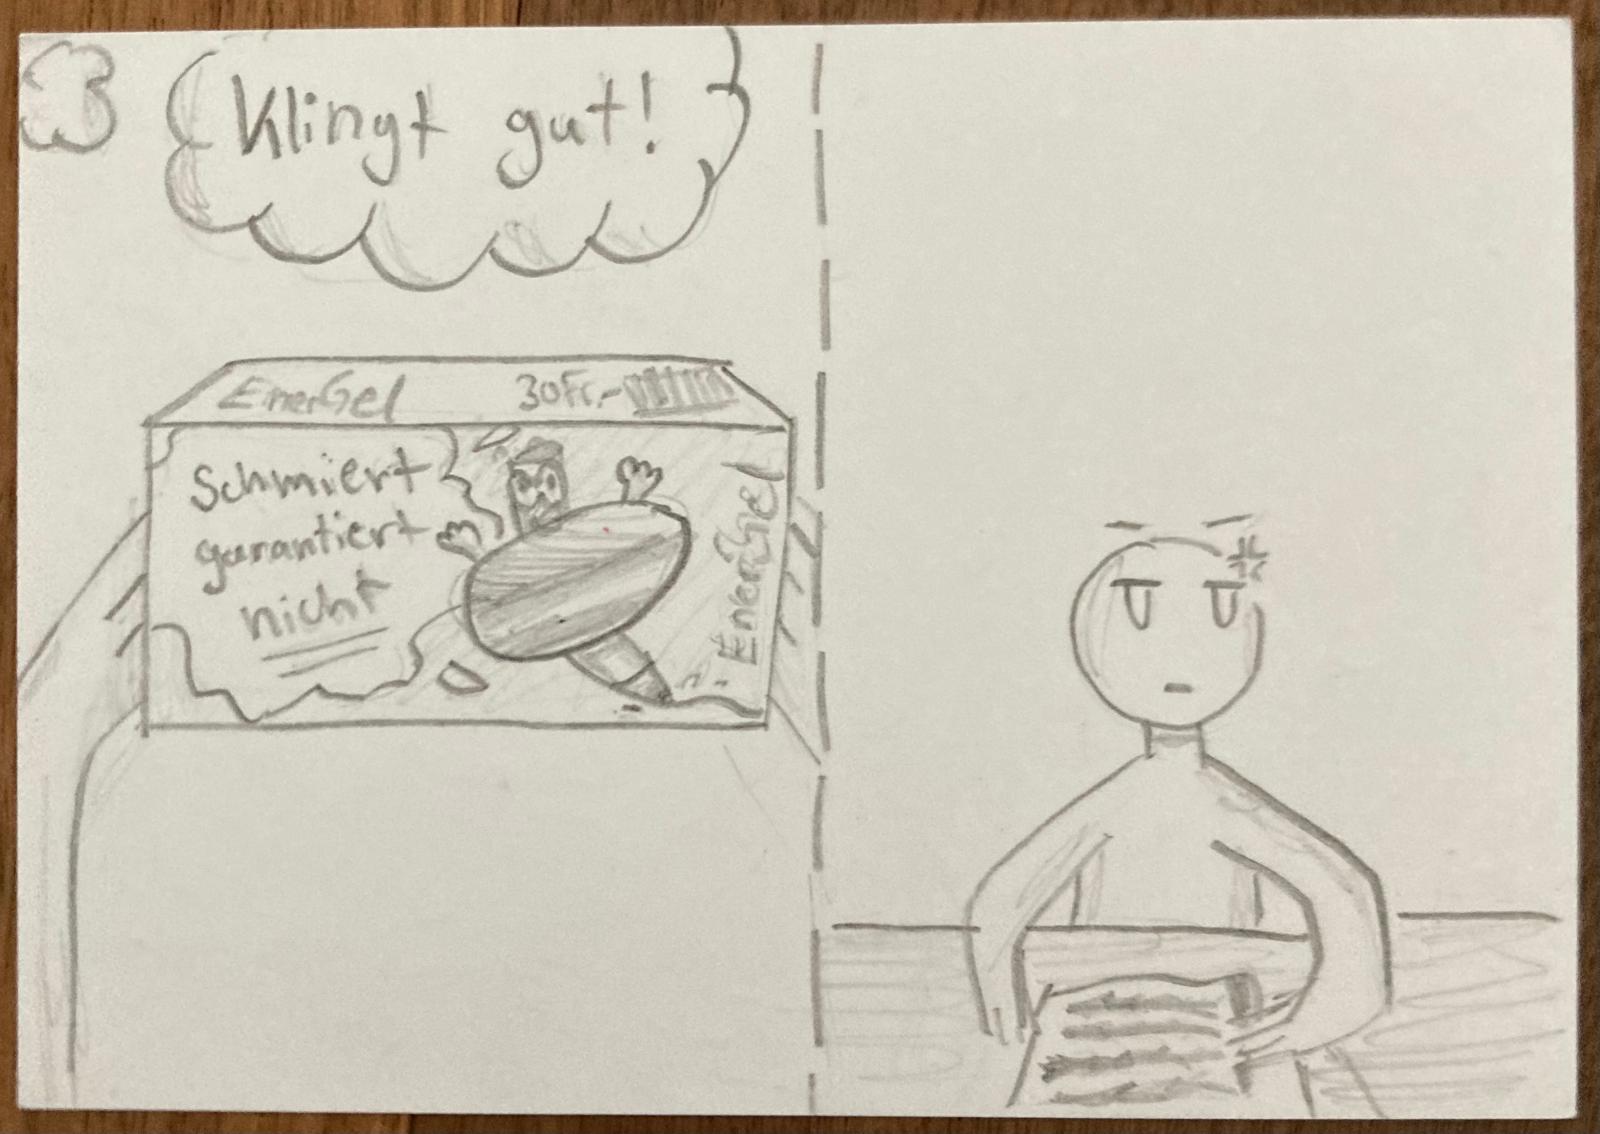 Klingt gut!
EnerGel 30Fr.-
Schmiert
garantiert
nicht
EnerGel